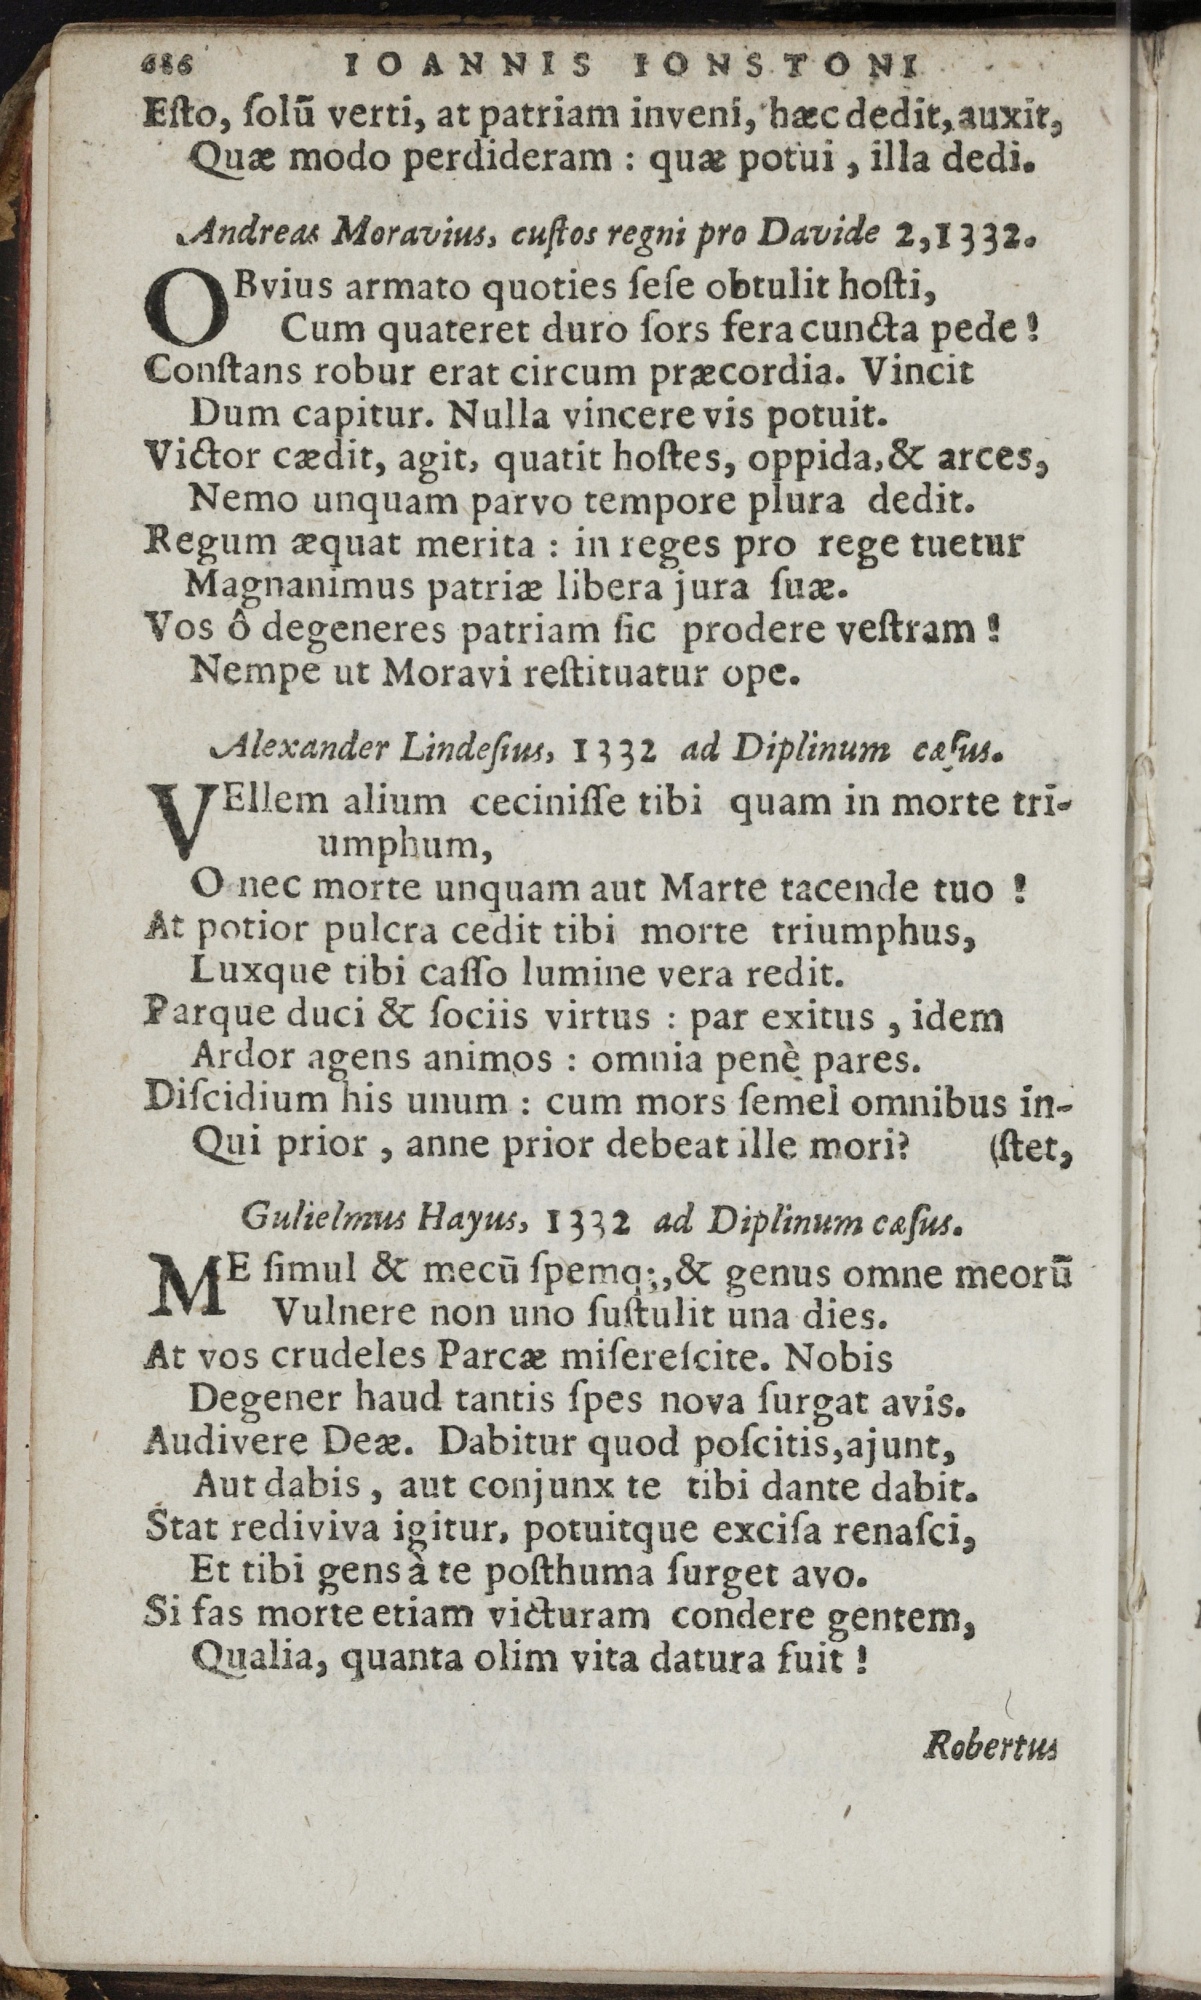 686 IOANNIS IONSTONI
Eſto, ſolū verti, at patriam inveni, hæc dedit, auxit,
Quæ modo perdideram : quæ potui , illa dedi.
Andreas Moravius, cuſtos regni pro Davide 2, 1332.
OBvius armato quoties ſeſe obtulit hoſti,
Cum quateret duro ſors fera cuncta pede !
Conſtans robur erat circum præcordia. Vincit
Dum capitur. Nulla vincere vis potuit.
Victor cædit, agit, quatit hoſtes, oppida, & arces,
Nemo unquam parvo tempore plura dedit.
Regum æquat merita : in reges pro rege tuetur
Magnanimus patriæ libera jura ſuæ.
Vos ô degeneres patriam ſic prodere veſtram !
Nempe ut Moravi reſtituatur ope.
Alexander Lindeſius, 1332 ad Diplinum cæſus.
VEllem alium ceciniſſe tibi quam in morte tri-
umphum,
O nec morte unquam aut Marte tacende tuo !
At potior pulcra cedit tibi morte triumphus,
Luxque tibi caſſo lumine vera redit.
Parque duci & ſociis virtus : par exitus , idem
Ardor agens animos : omnia penè pares.
Diſcidium his unum : cum mors ſemel omnibus in-
Qui prior , anne prior debeat ille mori? (ſtet,
Gulielmus Hayus, 1332 ad Diplinum cæſus.
ME ſimul & mecū ſpemq;, & genus omne meorū
Vulnere non uno ſuſtulit una dies.
At vos crudeles Parcæ miſereſcite. Nobis
Degener haud tantis ſpes nova ſurgat avis.
Audivere Deæ. Dabitur quod poſcitis, ajunt,
Aut dabis , aut conjunx te tibi dante dabit.
Stat rediviva igitur, potuitque exciſa renaſci,
Et tibi gens à te poſthuma ſurget avo.
Si fas morte etiam victuram condere gentem,
Qualia, quanta olim vita datura fuit !
Robertus